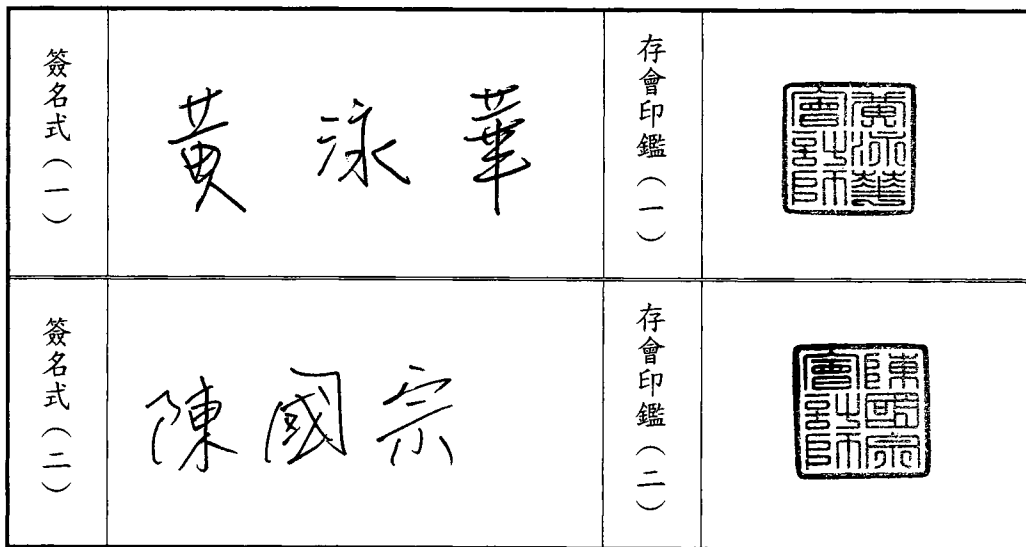 簽名式(一)
黃泳華
存會印鑑(一)
黃泳華
會計師
簽名式(二)
陳國宗
存會印鑑(二)
陳國宗
會計師